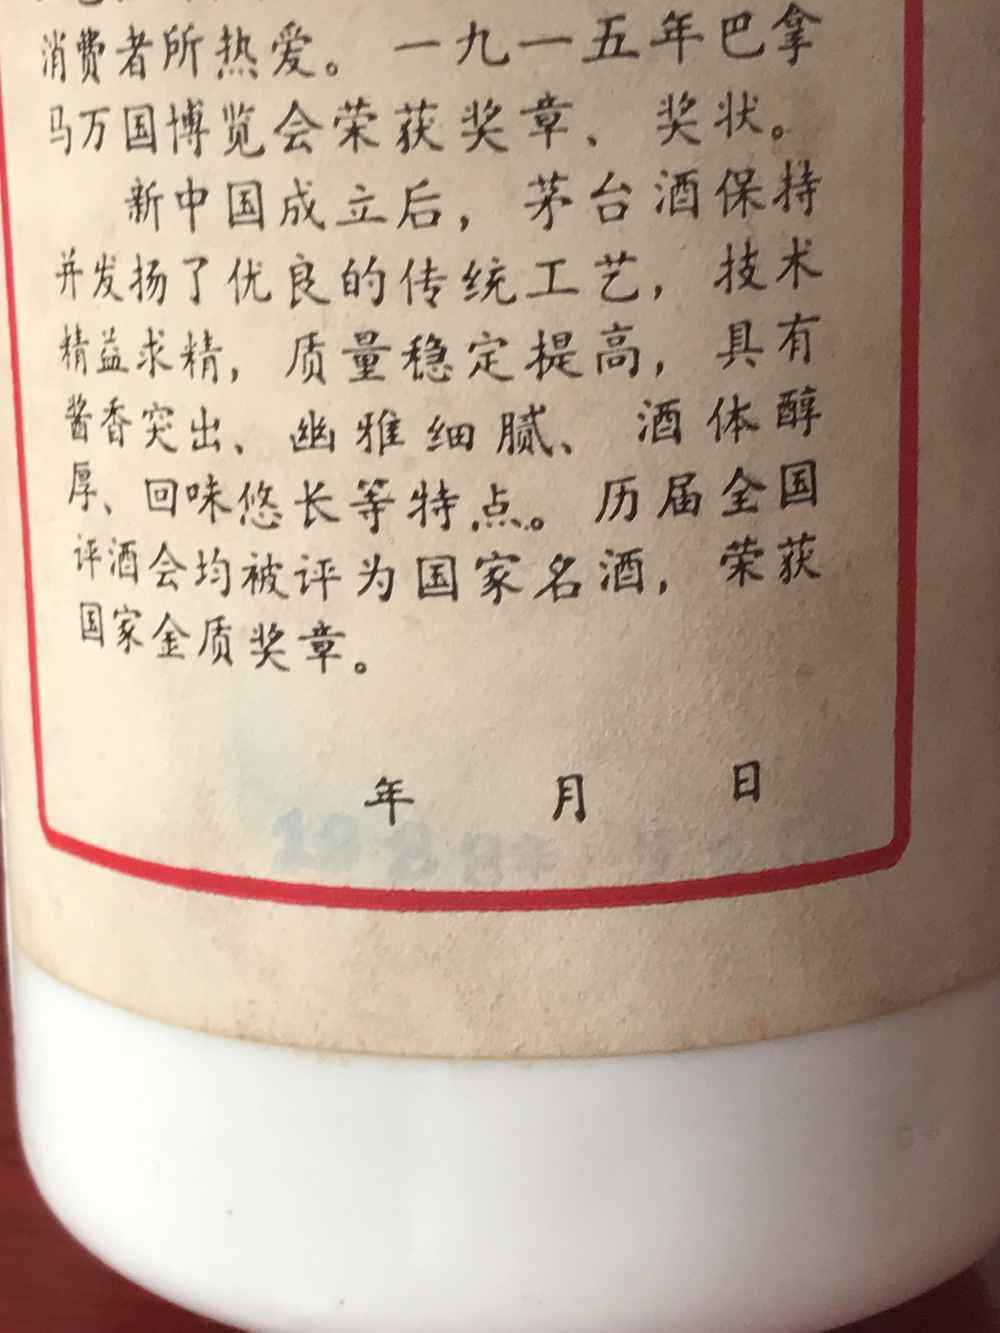 消费者所热爱。一九一五年巴拿
马万国博览会荣获奖章、奖状。
新中国成立后，茅台酒保持
并发扬了优良的传统工艺，技术
精益求精，质量稳定提高，具有
酱香突出、幽雅细腻、酒体醇
厚、回味悠长等特点。历届全国
评酒会均被评为国家名酒，荣获
国家金质奖章。
年 月 日